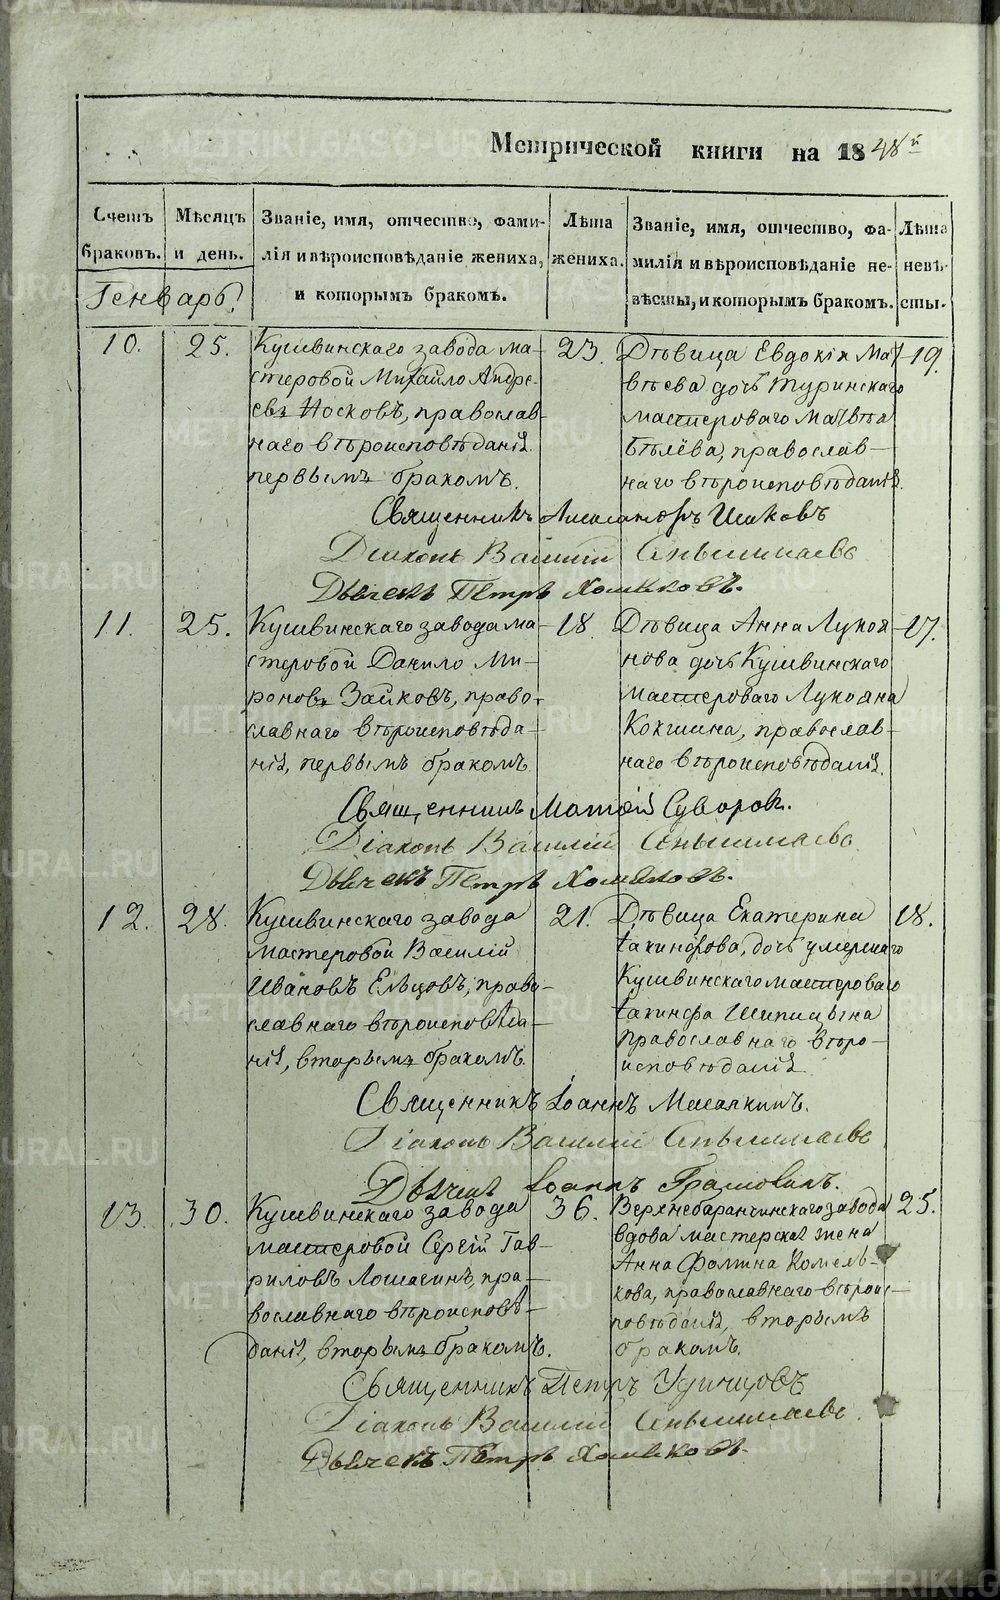 Метрической книги на 1848й
Счетъ браковъ.
Мѣсяцъ и день.
Званіе, имя, отчество, фами-
лія и вѣроисповѣданіе жениха,
и которымъ бракомъ.
Лѣта жениха.
Званіе, имя, отчество, фа-
милія и вѣроисповѣданіе не-
вѣсты, и которымъ бракомъ.
Лѣта невѣ-
сты.
Генварь
10.
25.
Кушвинскаго завода ма-
стеровой Михайло Андре-
евъ Носковъ, православ-
наго вѣроисповѣданія
первымъ бракомъ.
23.
Дѣвица Евдокія Мат-
вѣева дочь Туринскаго
мастероваго Матвѣа
Бѣлёва, православ-
наго вѣроисповѣданія.
19.
Священникъ Александръ
Діаконъ Василій
Дьячекъ Петръ Хомяковъ.
11.
25.
Кушвинскаго завода ма-
стеровой Данило Ми-
роновъ Зайковъ, право-
славнаго вѣроисповѣда-
нія, первымъ бракомъ
18.
Дѣвица Анна Лукоя-
нова дочь Кушвинскаго
мастероваго Лукояна
Кокшина, православ-
наго вѣроисповѣданія.
17.
Священникъ Матѳій Суворовъ.
Діаконъ Василій
Дьячекъ Петръ Хомяковъ.
12.
28.
Кушвинскаго завода
мастеровой Василій
Ивановъ Ельцовъ, право-
славнаго вѣроисповѣда-
нія, вторымъ бракомъ.
21.
Дѣвица Екатерина
Іакинфова, дочь умершаго
Кушвинскаго мастероваго
Іакинфа Шипицына
православнаго вѣро-
исповѣданія
18.
Священникъ Іоаннъ
Діаконъ Василій
Дьячекъ Іоаннъ
13.
30.
Кушвинскаго завода
мастеровой Сергій Гав-
риловъ Лошагинъ, пра-
вославнаго вѣроисповѣ-
данія, вторымъ бракомъ.
36.
Верхнебаранчинскаго завода
вдова мастерская жена
Анна Фомина Комель-
кова, православнаго вѣроис-
повѣданія, вторымъ
бракомъ.
25.
Священникъ Петръ Удинцовъ
Діаконъ Василій
Дьячекъ Петръ Хомяковъ.
METRIKI.GASO-URAL.RU